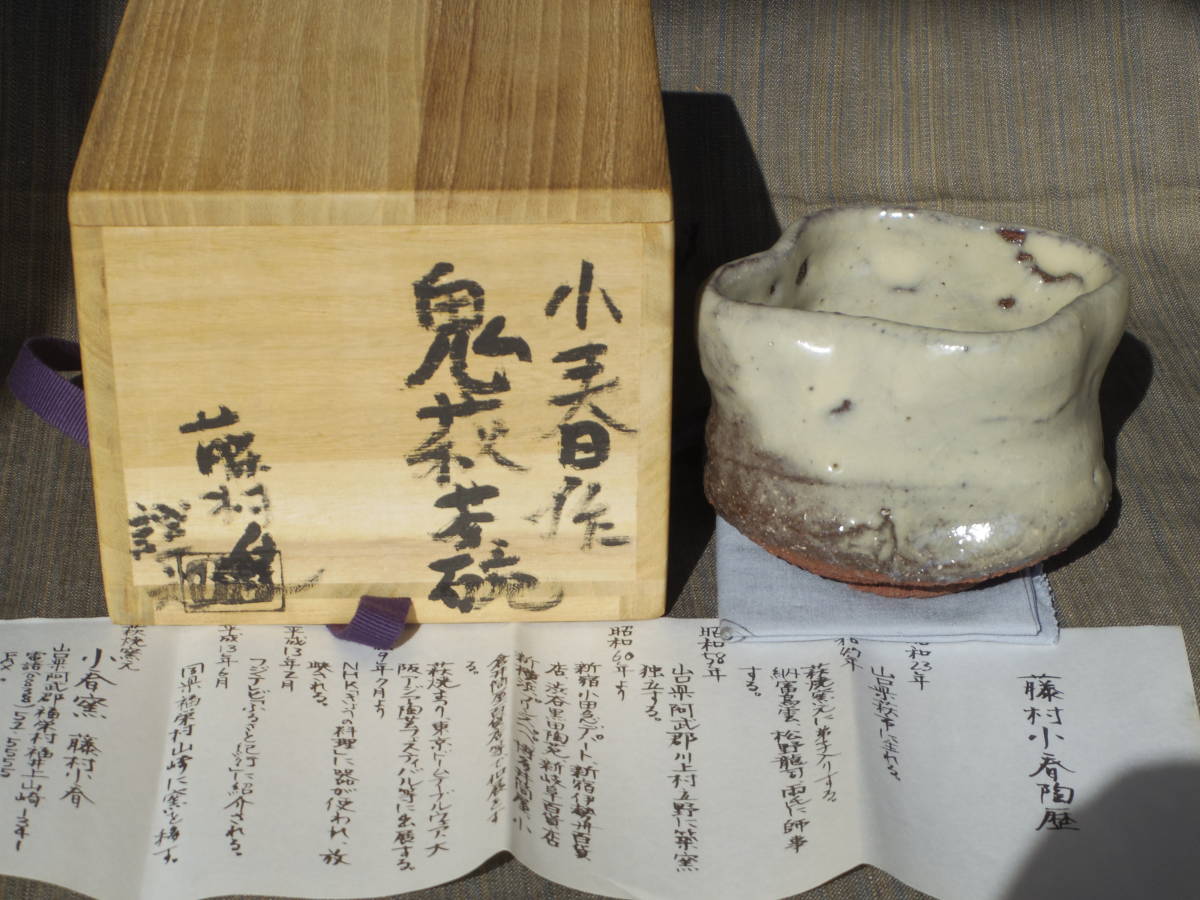 小春作
鬼萩茶碗
藤村
藤村小春陶歴
和23年
山口県萩市に生れる。
萩焼窯元に弟子入りする。
納富鳥雲、松野龍司両氏に師事
する。
昭和58年
山口県阿武郡川上村立野に築窯
独立する。
昭和60年より
新宿小田急デパート、新宿伊勢丹百貨
店、渋谷黒田陶苑、新岐阜百貨店
る。
萩焼まつり、東京ドームテーブルウェア、大
阪ドーム陶芸フェスティバル等に出展する。
9年7月より
NHKきょうの料理に器が使われ、放
映される。
平成13年2月
フジテレビふるさと
に紹介される。
平成13年6月
同県福栄村山崎に窯を移す。
萩焼窯元
小春窯 藤村小春
山口県阿武郡福栄村福井上山崎
電話
FAX